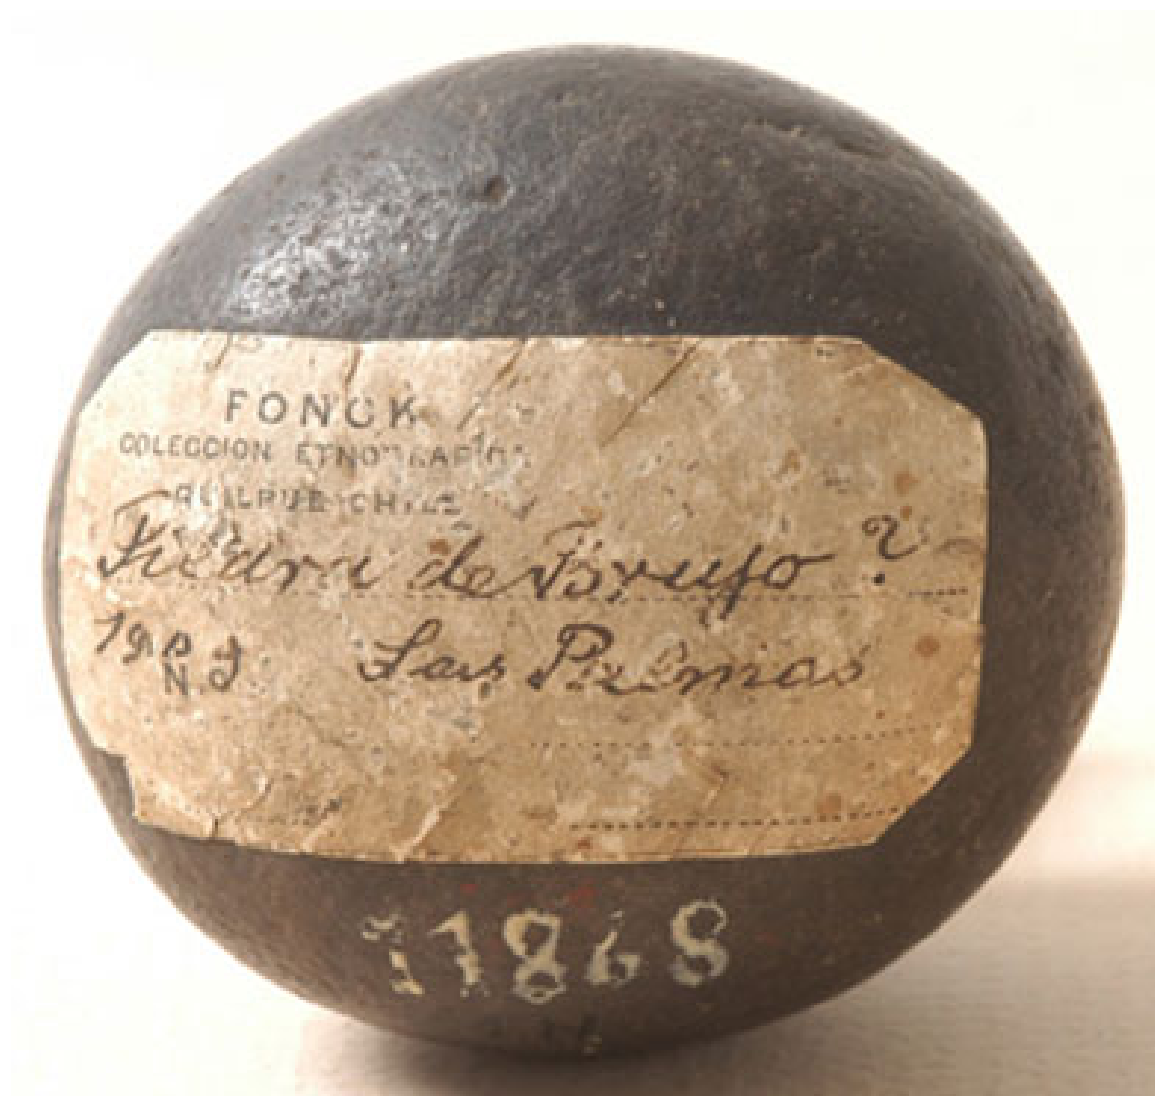 FONCK
COLECCION ETNOGRAFICA
QUILPUE CHILE
Piedra de Brujo ?
Las Palmas
11868